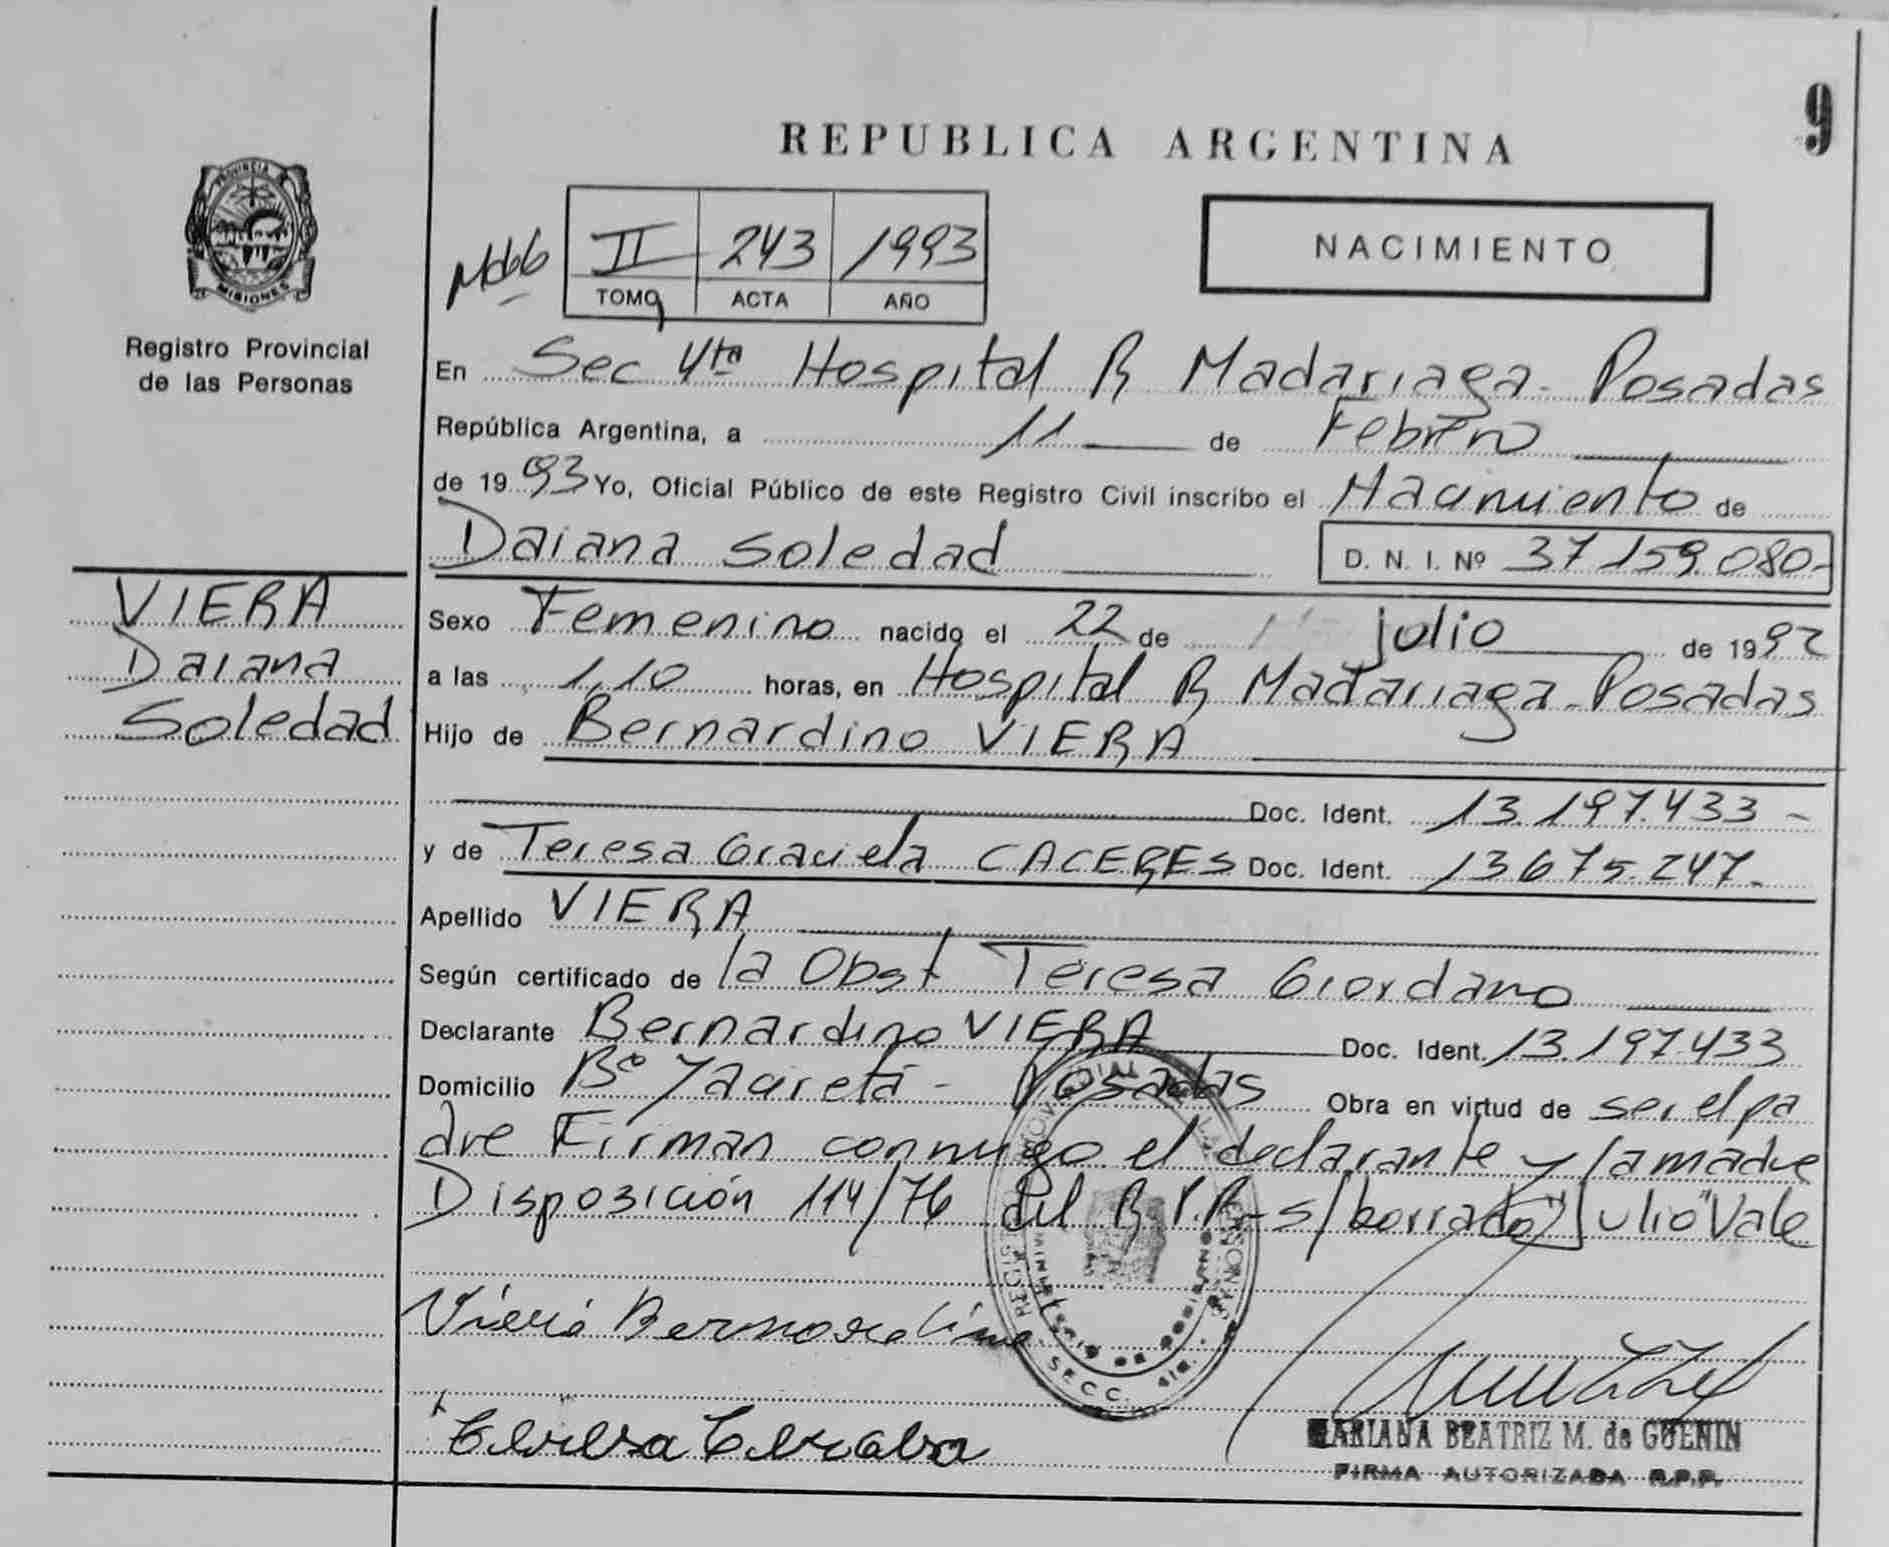 9
REPUBLICA ARGENTINA
PROVINCIA DE
MISIONES
Registro Provincial
de las Personas
II 243 1993
TOMO ACTA AÑO
NACIMIENTO
En Sec 4ta Hospital R Madariaga - Posadas
República Argentina, a 11 de Febrero
de 1993 Yo, Oficial Público de este Registro Civil inscribo el Nacimiento de
Daiana Soledad D. N. I. Nº 37159.080-
VIERA
Daiana
Soledad
Sexo Femenino nacido el 22 de julio de 1992
a las 1,10 horas, en Hospital R Madariaga - Posadas
Hijo de Bernardino VIERA
Doc. Ident. 13.197.433 -
y de Teresa Graciela CACERES Doc. Ident. 13675.247-
Apellido VIERA
Según certificado de la Obst Teresa Giordano
Declarante Bernardino VIERA Doc. Ident. 13.197.433
Domicilio Bº Yacireta - Posadas Obra en virtud de ser el pa
dre Firman conmigo el declarante y la madre
Disposición 114/76 del R.P.P - s/borrado "Julio" Vale
Viera Bernardino
SECC. 4ta.
MARIANA BEATRIZ M. de GUENIN
FIRMA AUTORIZADA R.P.P.